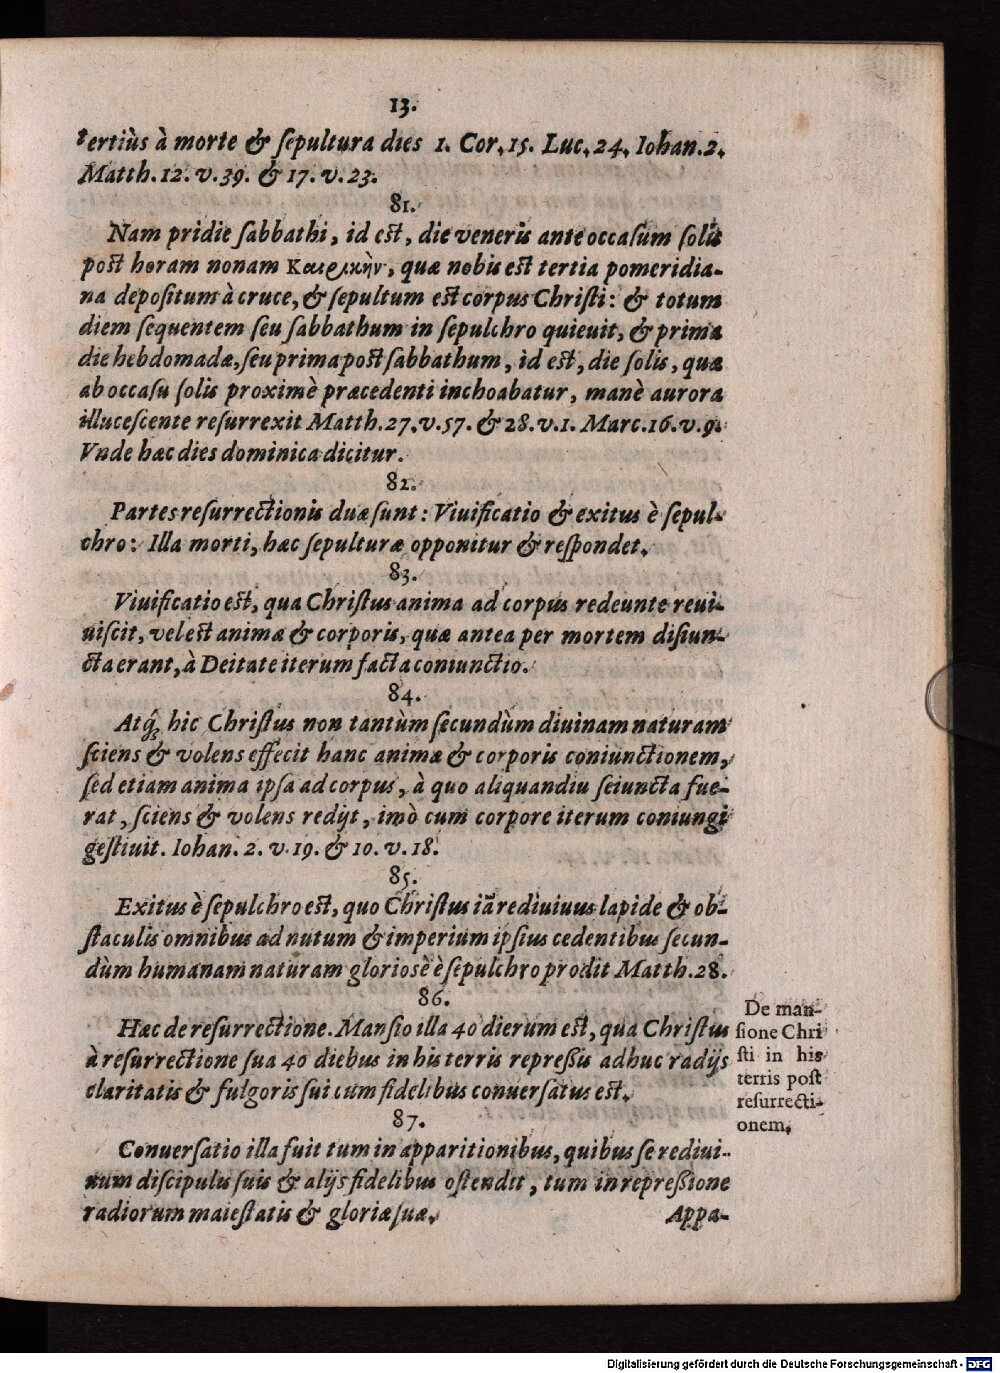 13.
tertiùs à morte & sepultura dies 1. Cor. 15. Luc. 24. Iohan. 2.
Matth. 12. v. 39. & 17. v. 23.
81.
Nam pridie sabbathi, id est, die veneris ante occasum solis
post horam nonam Καιρικὴν, quæ nobis est tertia pomeridia-
na depositum à cruce, & sepultum est corpus Christi: & totum
diem sequentem seu sabbathum in sepulchro quieuit, & prima
die hebdomadæ, seu prima post sabbathum, id est, die solis, quæ
ab occasu solis proximè præcedenti inchoabatur, manè aurora
illucescente resurrexit Matth. 27. v. 57. & 28. v. 1. Marc. 16. v. 9.
Vnde hæc dies dominica dicitur.
82.
Partes resurrectionis duæ sunt: Viuificatio & exitus è sepul-
chro: Illa morti, hæc sepulturæ opponitur & respondet.
83.
Viuificatio est, qua Christus anima ad corpus redeunte reui-
uiscit, vel est animæ & corporis, quæ antea per mortem disiun-
cta erant, à Deitate iterum facta coniunctio.
84.
Atq́; hic Christus non tantùm secundùm diuinam naturam
sciens & volens effecit hanc animæ & corporis coniunctionem,
sed etiam anima ipsa ad corpus, à quo aliquandiu seiuncta fue-
rat, sciens & volens redijt, imò cum corpore iterum coniungi
gestiuit. Iohan. 2. v. 19. & 10. v. 18.
85.
Exitus è sepulchro est, quo Christus iã rediuiuus lapide & ob-
staculis omnibus ad nutum & imperium ipsius cedentibus secun-
dùm humanam naturam gloriosè è sepulchro prodit Matth. 28.
86.
Hæc de resurrectione. Mansio illa 40 dierum est, qua Christus
à resurrectione sua 40 diebus in his terris repressis adhuc radijs
claritatis & fulgoris sui cum fidelibus conuersatus est.
De man-
sione Chri
sti in his
terris post
resurrecti-
onem.
87.
Conuersatio illa fuit tum in apparitionibus, quibus se rediui-
uum discipulis suis & alijs fidelibus ostendit, tum in repressione
radiorum maiestatis & gloriæ suæ.
Appa-
Digitalisierung gefördert durch die Deutsche Forschungsgemeinschaft - DFG